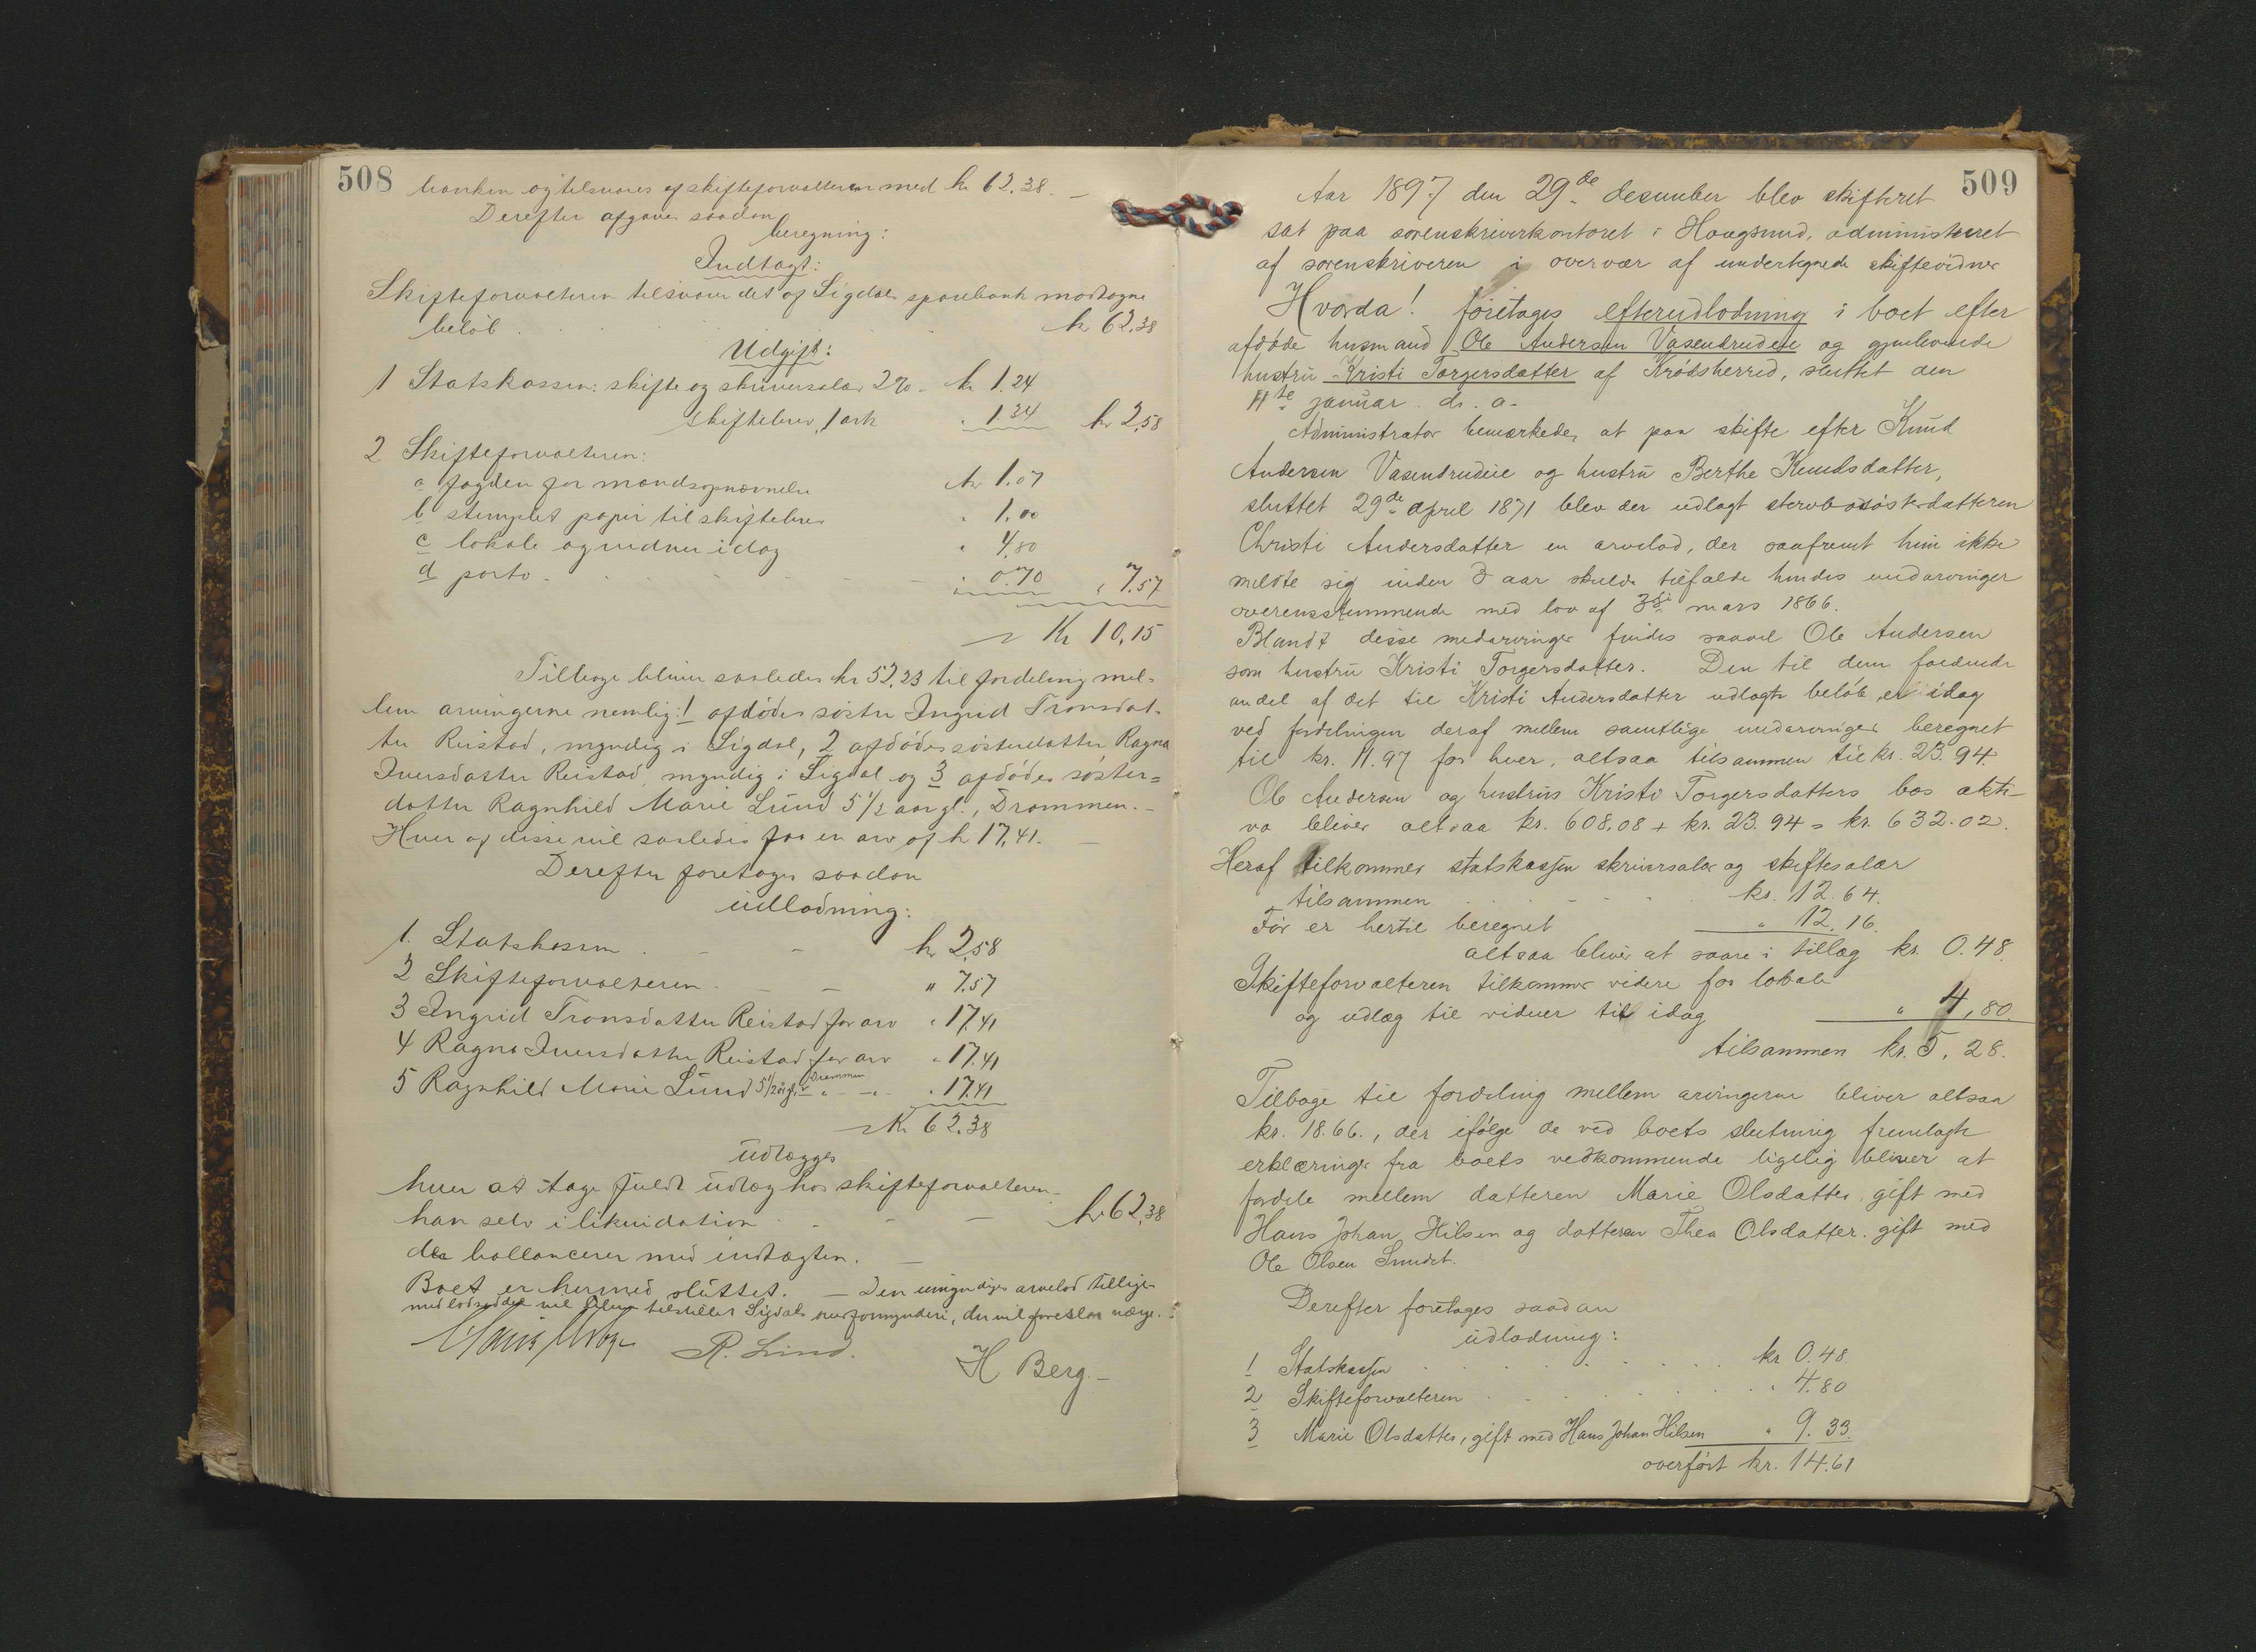 508
banken og tilsvares af skifteforvalteren med kr 62.38. –
Derefter afgaves saadan
beregning:
Indtægt:
Skifteforvalteren tilsvarer det af Sigdals sparebank modtagne
beløb . . . kr 62,38
Udgift:
1 Statskassen: skifte og skriversalær 2% - kr 1.24
skiftebrev, 1 ark " 1.34 kr 2,58
2 Skifteforvalteren:
a fogden for mandsopnævnelse kr 1.07
b stemplet papir til skiftebrev " 1.00
c lokale og vidner idag " 4,80
d porto . " 0.70 " 7.57
Kr 10,15
Tilbage bliver saaledes kr 52,23 til fordeling mel-
lem arvingerne nemlig: 1 afdødes søster Ingrid Tronsdat-
ter Reistad, myndig i Sigdal, 2 afdødes søsterdatter Ragna
Iversdatter Reistad, myndig i Sigdal og 3 afdødes søster=
datter Ragnhild Marie Lund 5 1/2 aar gl., Drammen. –
Hver af disse vil saaledes faa en arv af kr 17,41. –
Derefter foretages saadan
udlodning:
1. Statskassen . – – kr 2,58
2 Skifteforvalteren – – " 7.57
3 Ingrid Tronsdatter Reistad for arv " 17,41
4 Ragna Iversdatter Reistad for arv " 17.41
5 Ragnhild Marie Lund 5 1/2 år gl. Drammen " – " – " 17.41
Kr 62.38
udlægges
hver at tage fuldt udlæg hos skifteforvalteren –
han selv i likvidation – – kr 62,38
der ballancerer med indtægten. –
Boet er hermed sluttet. – Den umyndiges arvelod tillige-
med lodseddel vil blive tilstillet Sigdals overformynderi, der vil foreslaa værge. –
R. Lind.
H Berg. –
509
Aar 1897 den 29de desember blev skifteret
sat paa sorenskriverkontoret i Hougsund, administreret
af sorenskriveren i overvær af undertegnede skiftevidner
Hvorda! foretages efterudlodning i boet efter
afdøde husmand Ole Andersen Vasendrudeie og gjenlevende
hustru Kristi Torgersdatter af Krødsherred, sluttet den
11te januar d. a.
Administrator bemærkede, at paa skifte efter Knud
Andersen Vasendrudeie og hustru Berthe Knudsdatter,
sluttet 29de april 1871 blev der udlagt stervbosøsterdatteren
Christi Andersdatter en arvelod, der saafremt hun ikke
meldte sig inden 3 aar skulde tilfalde hendes medarvinger
overensstemmende med lov af 3die mars 1866.
Blandt disse medarvinger findes saavel Ole Andersen
som hustru Kristi Torgersdatter. Den til dem faldende
andel af det til Kristi Andersdatter udlagte beløb er idag
ved fordelingen deraf mellem samtlige medarvinger beregnet
til kr. 11.97 for hver, altsaa tilsammen til kr. 23.94
Ole Andersen og hustrus Kristi Torgersdatters bos akti-
va bliver altsaa kr. 608.08 + kr. 23.94 = kr. 632.02.
Heraf tilkommer statskassen skriversalær og skiftesalær
tilsammen . . . kr. 12.64.
Før er hertil beregnet " 12.16.
altsaa bliver at svare i tillæg kr. 0.48.
Skifteforvalteren tilkommer videre for lokale
og udlæg til vidner til idag " 4,80.
tilsammen kr. 5,28.
Tilbage til fordeling mellem arvingerne bliver altsaa
kr. 18.66., der ifølge de ved boets slutning fremlagte
erklæringer fra boets vedkommende ligelig bliver at
fordele mellem datteren Marie Olsdatter gift med
Hans Johan Hilsen og datteren Thea Olsdatter gift med
Ole Olsen
Derefter foretages saadan
udlodning:
1 Statskassen . . . kr 0.48.
2 Skifteforvalteren . . . " 4.80
3 Marie Olsdatter, gift med Hans Johan Hilsen " 9.33.
overført kr. 14.61